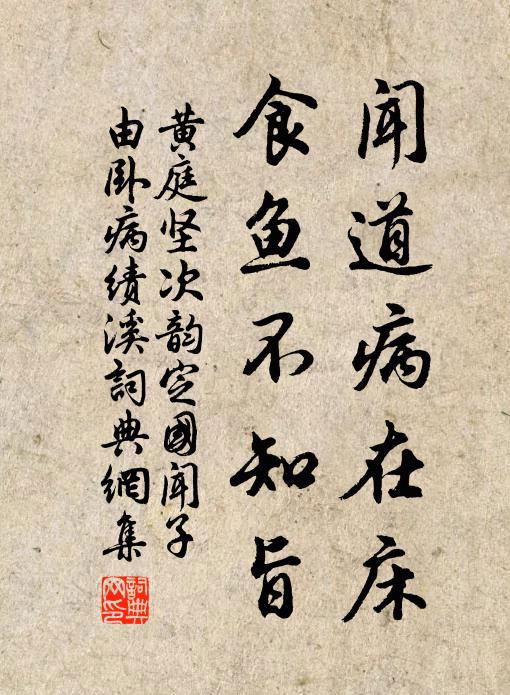 闻道病在床
食鱼不知旨
黄庭坚次韵定國闻子
由卧病绩溪詞典網集
詞典网印